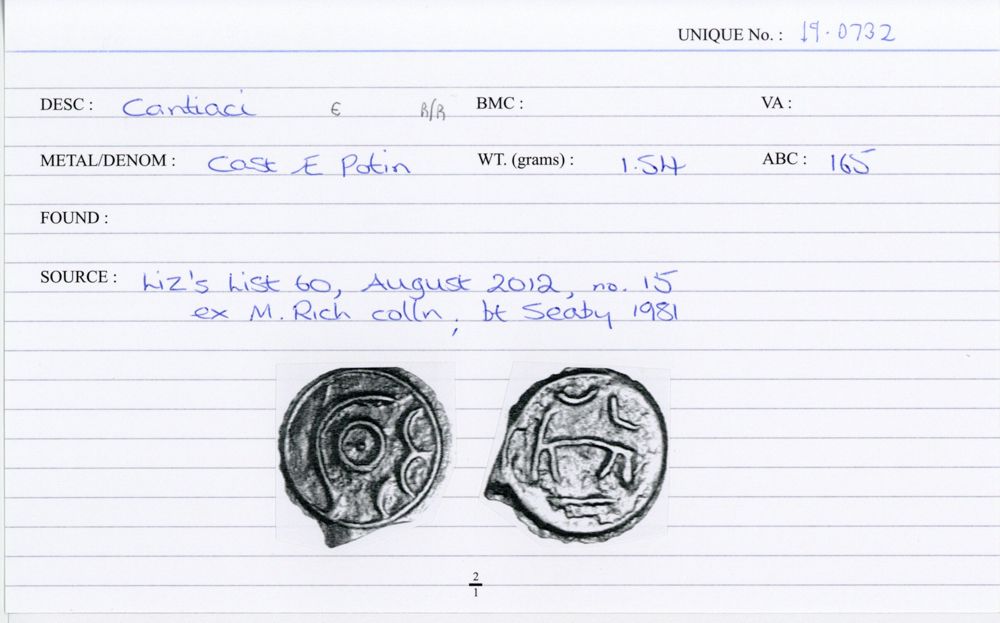 UNIQUE No. : 19.0732
DESC : Cantiaci E R/R BMC : VA :
METAL/DENOM : Cast Æ Potin WT. (grams) : 1.54 ABC : 165
FOUND :
SOURCE : Liz's List 60, August 2012, no. 15
ex M. Rich colln, bt Seaby 1981
2
1